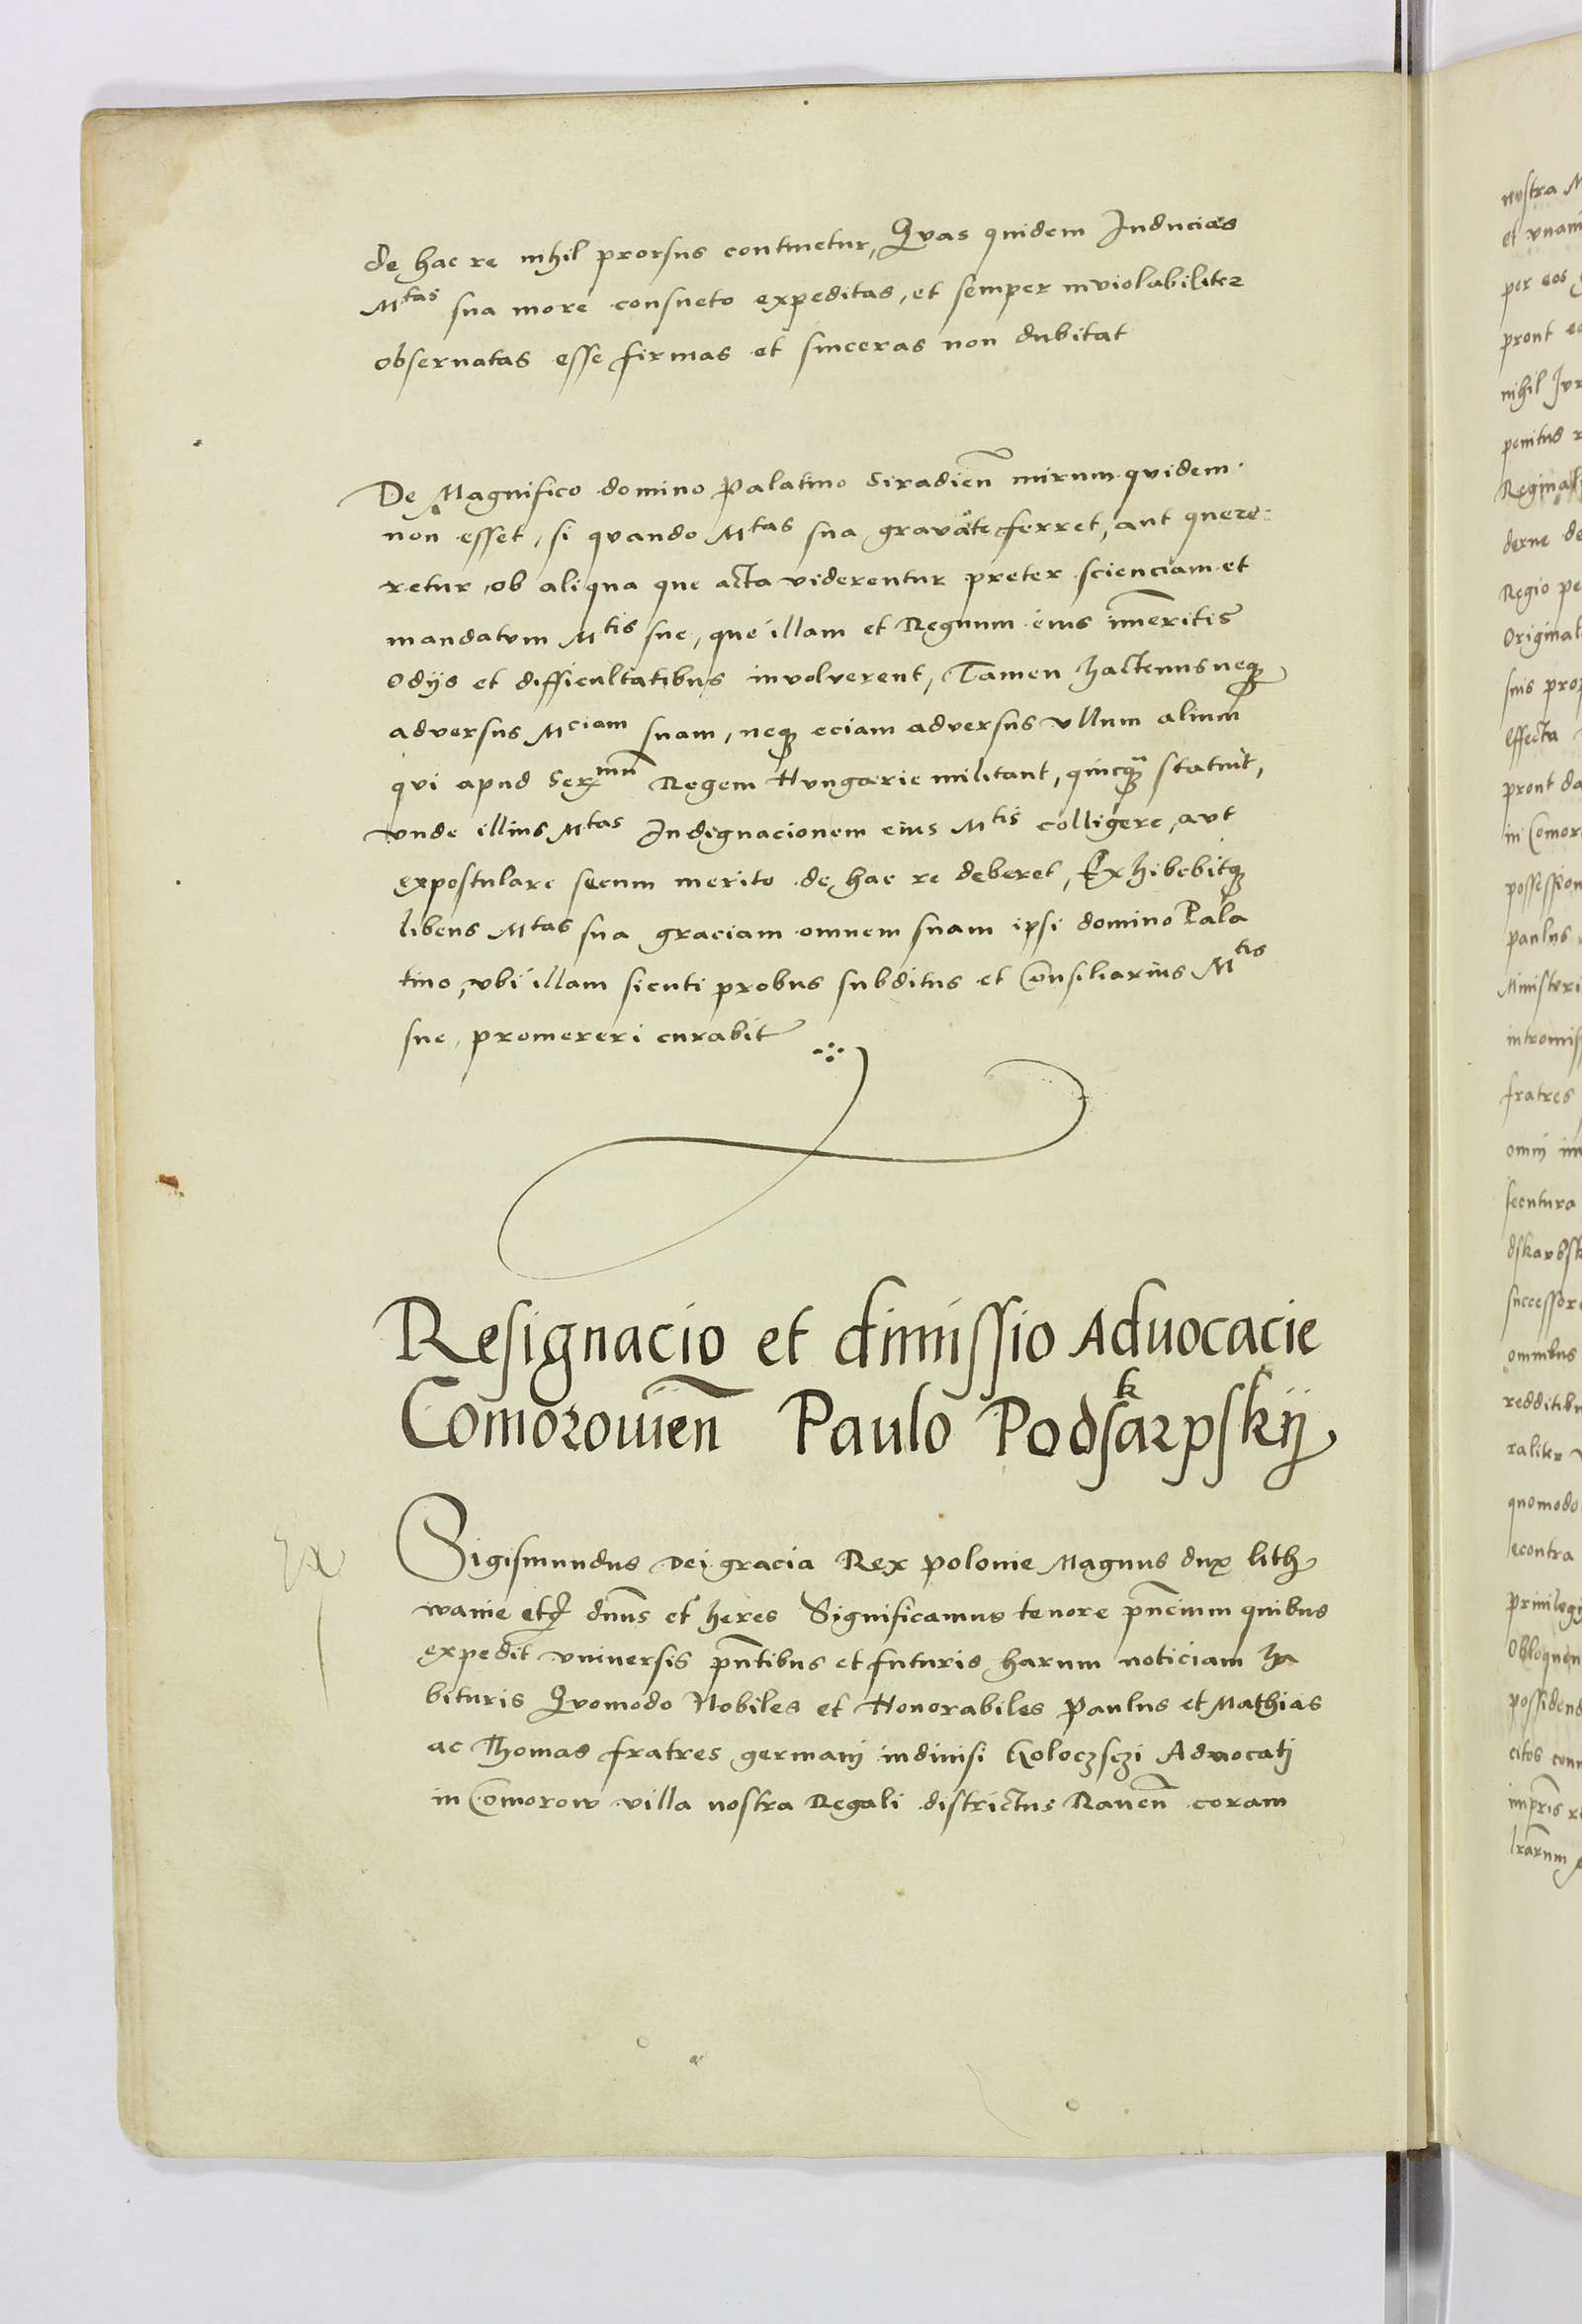 de hac re nihil prorsus continetur, Quas quidem Inducias
Mtas sua more consueto expeditas, et semper inviolabiliter
obseruatas esse firmas et sinceras non dubitat
De Magnifico domino palatino Siradien̄ mirum quidem
non esset, si quando Mtas sua gravate ferret, aut quere
retur ob aliqua que acta viderentur preter scienciam et
mandatum Mtis sue, que illam et Regnum eius īmeritis
odijs et difficultatibus involverent, Tamen hactenus neqꝫ
adversus Mciam suam, neqꝫ eciam adversus vllum alium
qui apud Serᵐᵘ Regem Hungarie militant, quicqꝫ statuit,
vnde illius Mtas Indignacionem eius Mtis colligere, aut
expostulare secum merito de hac re deberet, Exhibebitqꝫ
libens Mtas sua graciam omnem suam ipsi domino Pala
tino, vbi illam sicuti probus subditus et Consiliarius Mtis
sue promereri curabit
Resignacio et dimissio Aduocacie
Comorouien̄ Paulo Podskarpskij
Sigismundus Dei gracia Rex polonie Magnus dux lith
wanie etc̄ dn̄us et heres Significamus tenore pn̄cium quibus
expedit vniuersis pn̄tibus et futuris harum noticiam ha
bituris Quomodo Nobiles et Honorabiles Paulus et Mathias
ac Thomas fratres germani indiuisi Koloczsczi Advocatj
in Comorow villa nostra Regali districtus Rauen̄ coram
nostra M
et vnani
per eos
prout eo
nihil Jur
penitus r
Reginal
derne de
Regio pe
Original
suis prop
effecta
prout da
in Comor
possession
paulus
Ministeri
intromiss
fratres
omni im
secutura
dskarbsk
successor
omnibus
redditibu
raliter
quomodo
econtra
priuilegi
obloquen
possidend
citos con
impr̄is r
lrārum